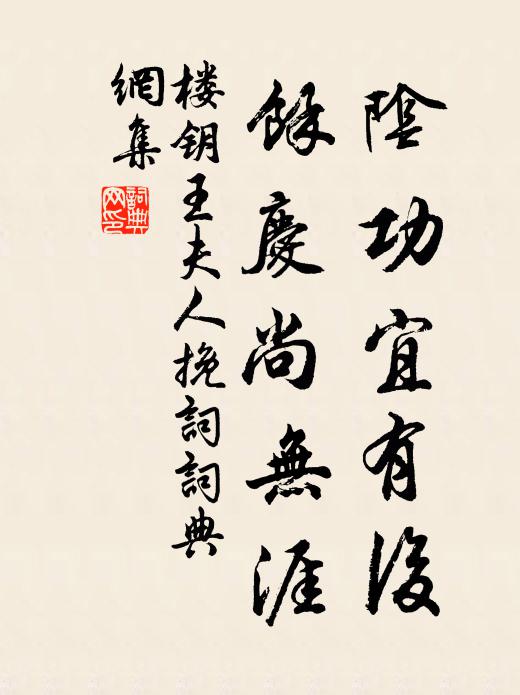 陰功宜有後
餘慶尚無涯
楼钥王夫人挽詞詞典
網集
詞典網印